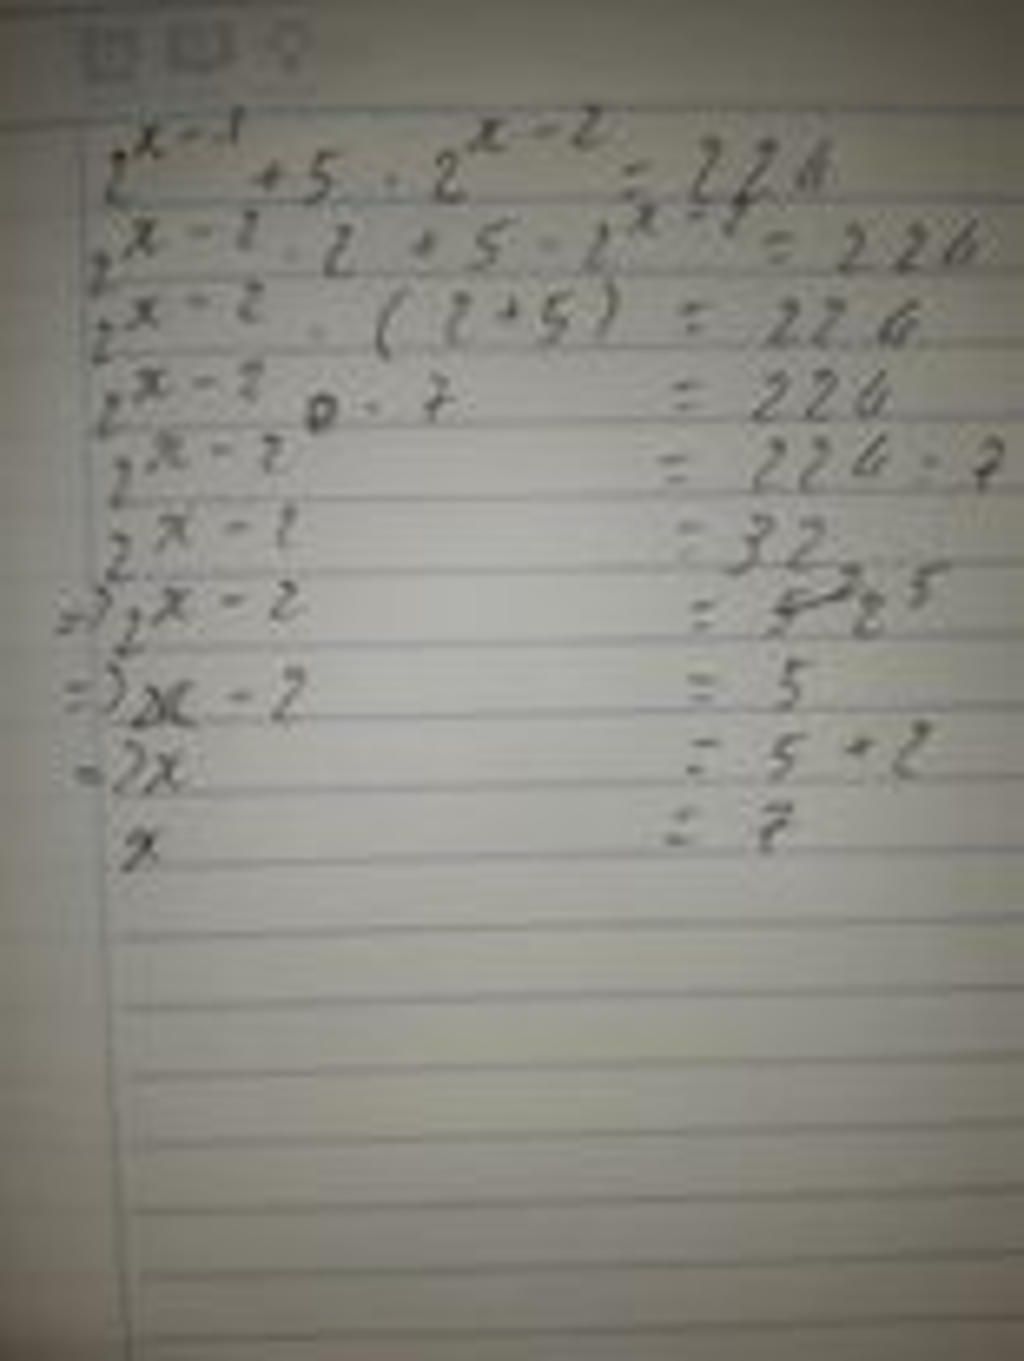 2^{x-1} + 5 . 2^{x-2} = 224
2^{x-2} . 2 + 5 . 2^{x-2} = 224
2^{x-2} . (2+5) = 224
2^{x-2} . 7 = 224
2^{x-2} = 224 : 7
2^{x-2} = 32
=> 2^{x-2} = 2^5
=> x - 2 = 5
=> x = 5 + 2
x = 7